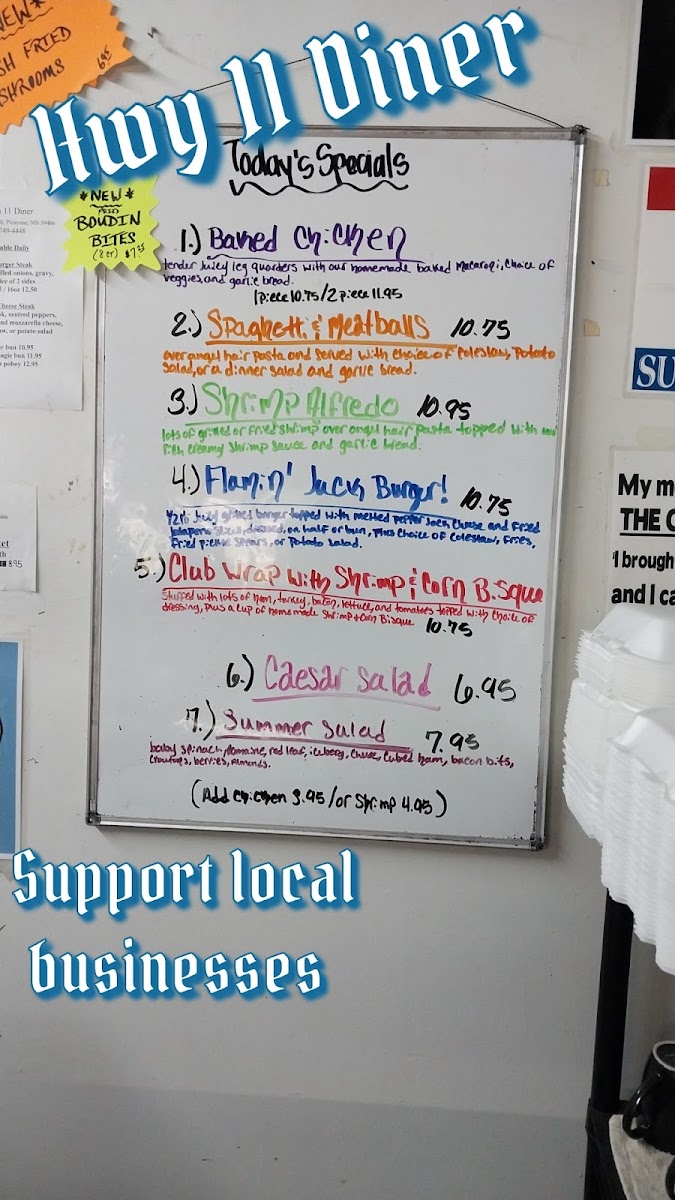 Hwy 11 Diner
*NEW*
SH FRIED
SHROOMS
6.95
Today's Specials
*NEW*
FRIED
BOUDIN
BITES
(8 er) $7.25
11 Diner
Picayune, MS 39466
749-4448
able Daily
urger Steak
illed onions, gravy,
ice of 2 sides
/ 16oz 12.50
Cheese Steak
k, sauteed peppers,
nd mozzarella cheese,
w, or potato salad
r bun 10.95
agie bun 11.95
s poboy 12.95
1.) Baked Chicken
tender Juicy leg quarters with our homemade baked macaroni, choice of
veggies, and garlic bread.
1 piece 10.75/2 piece 11.95
2.) Spaghetti & Meatballs 10.75
over angel hair pasta and served with choice of Coleslaw, Potato
Salad, or a dinner salad and garlic bread.
3.) Shrimp Alfredo 10.95
lots of grilled or fried shrimp over angel hair pasta topped with our
rich creamy shrimp sauce and garlic bread.
4.) Flamin' Jack Burger! 10.75
1/2 lb Juicy grilled burger topped with melted pepper Jack cheese and fried
Jalapeno slices, dressed, on half or bun, plus choice of coleslaw, fries,
fried pickle spears, or potato salad.
5.) Club Wrap with Shrimp & Corn Bisque
Stuffed with lots of ham, turkey, bacon, lettuce, and tomatoes topped with choice of
dressing, plus a cup of homemade Shrimp + Corn Bisque 10.75
6.) Caesar Salad 6.95
7.) Summer Salad 7.95
baby spinach, romaine, red leaf, iceberg, cheese, cubed ham, bacon bits,
croutons, berries, almonds.
(Add chicken 3.95/or Shrimp 4.95)
SU
My m
THE C
"I brough
and I ca
ket
th
895
Support local
businesses